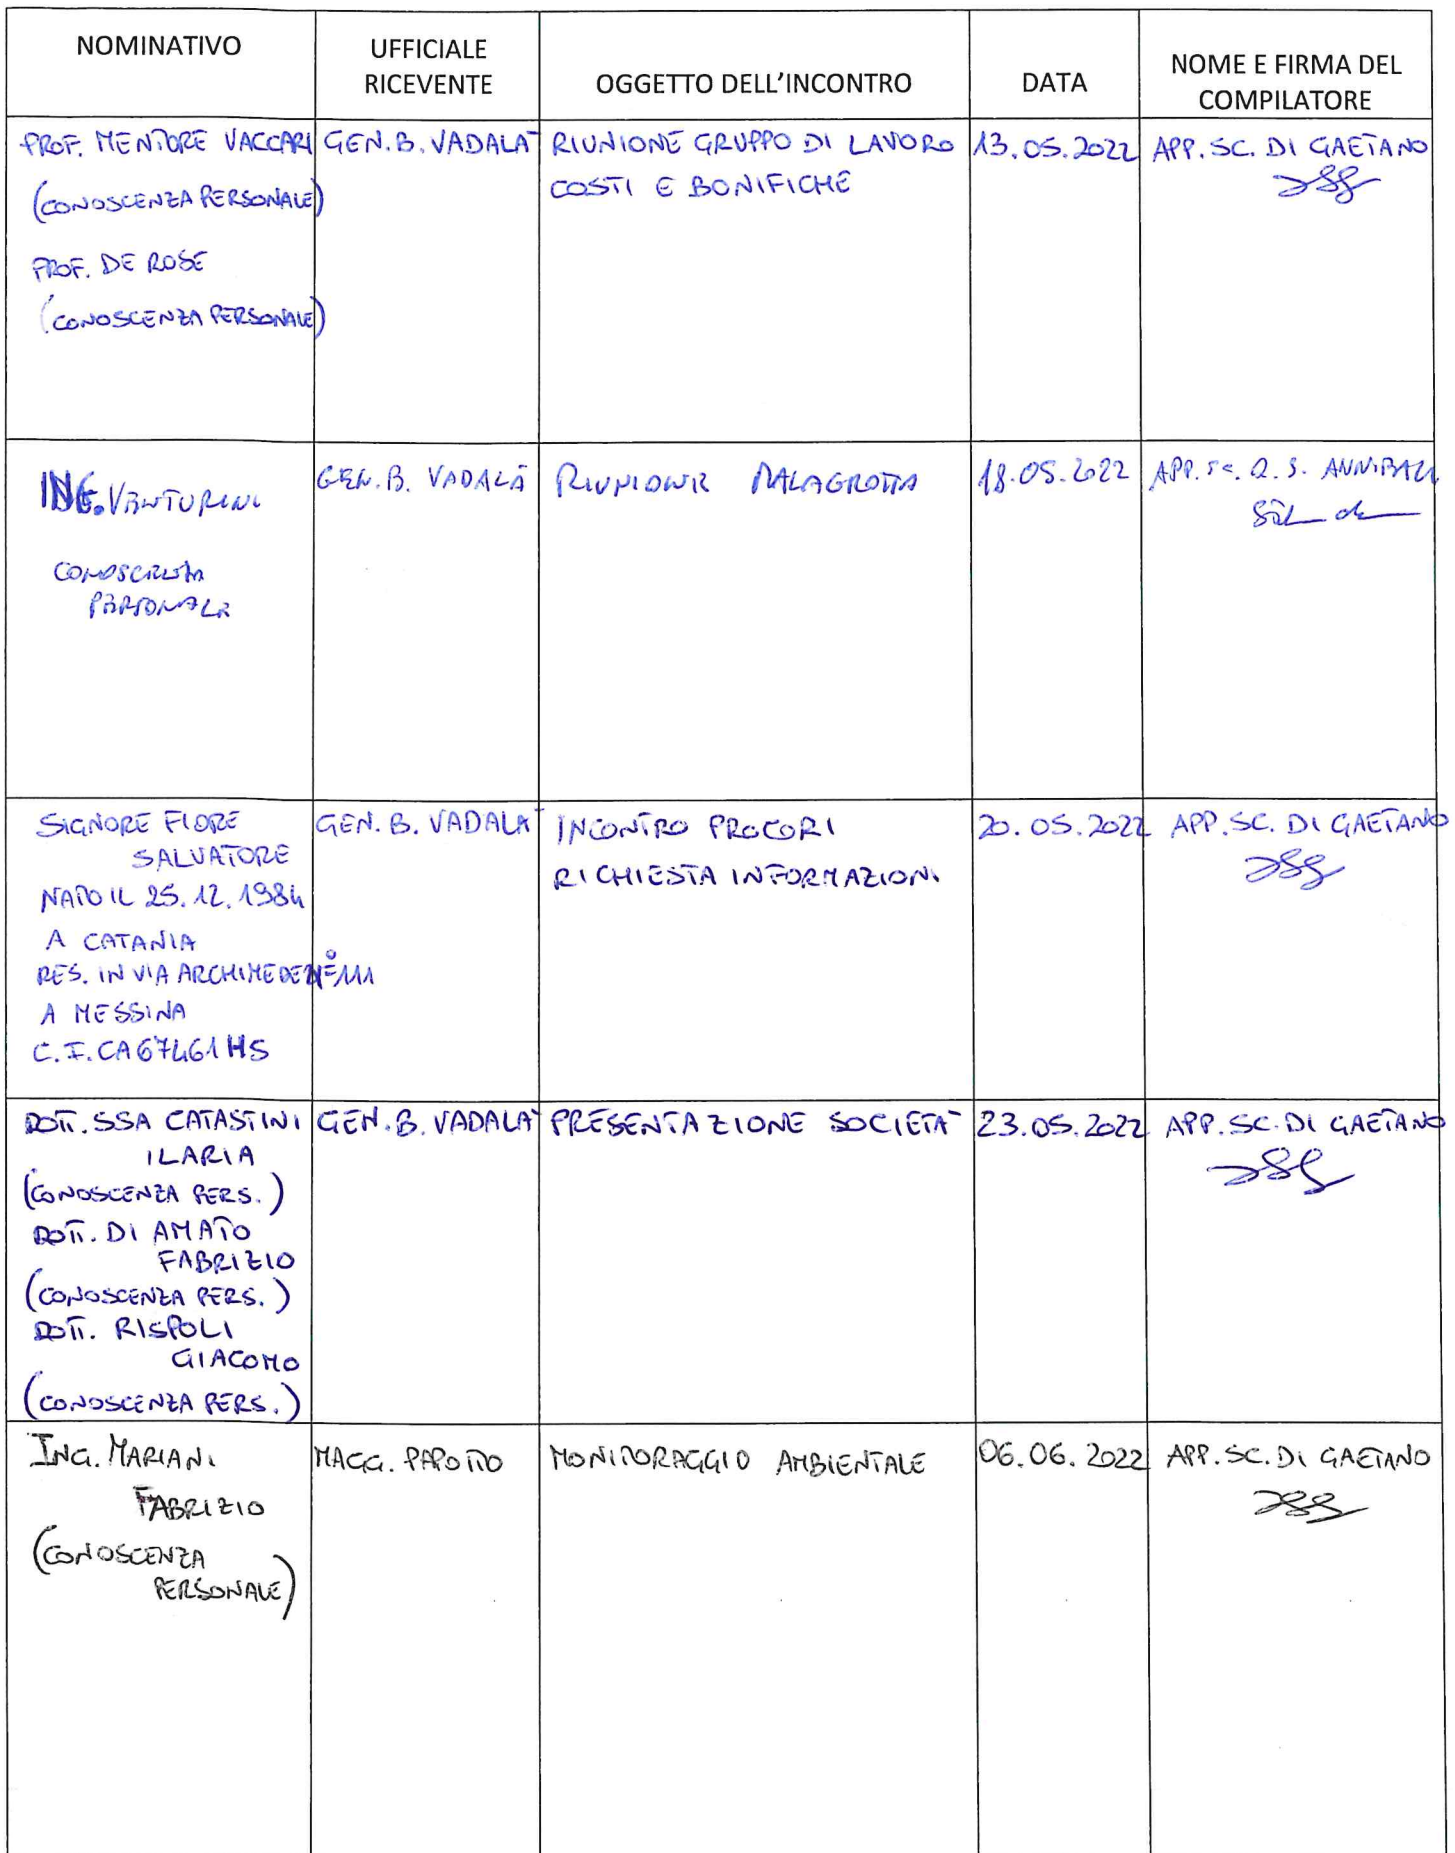 NOMINATIVO
UFFICIALE
RICEVENTE
OGGETTO DELL'INCONTRO
DATA
NOME E FIRMA DEL
COMPILATORE
PROF. MENTORE VACCARI
(CONOSCENZA PERSONALE)
PROF. DE ROSE
(CONOSCENZA PERSONALE)
GEN. B. VADALA'
RIUNIONE GRUPPO DI LAVORO
COSTI E BONIFICHE
13.05.2022
APP. SC. DI GAETANO
ING. VENTURINI
CONOSCENZA
PERSONALE
GEN. B. VADALÀ
RIUNIONE MALAGROTTA
18.05.2022
APP. SC. Q. S. ANNIBALI
SIGNORE FIORE
SALVATORE
NATO IL 25.12.1984
A CATANIA
RES. IN VIA ARCHIMEDE N° 111
A MESSINA
C.I. CA67461HS
GEN. B. VADALA'
INCONTRO PROCORI
RICHIESTA INFORMAZIONI
20.05.2022
APP. SC. DI GAETANO
DOTT.SSA CATASTINI
ILARIA
(CONOSCENZA PERS.)
DOTT. DI AMATO
FABRIZIO
(CONOSCENZA PERS.)
DOTT. RISPOLI
GIACOMO
(CONOSCENZA PERS.)
GEN. B. VADALA'
PRESENTAZIONE SOCIETA'
23.05.2022
APP. SC. DI GAETANO
ING. MARIANI
FABRIZIO
(CONOSCENZA
PERSONALE)
MAGG. PAPOTTO
MONITORAGGIO AMBIENTALE
06.06.2022
APP. SC. DI GAETANO